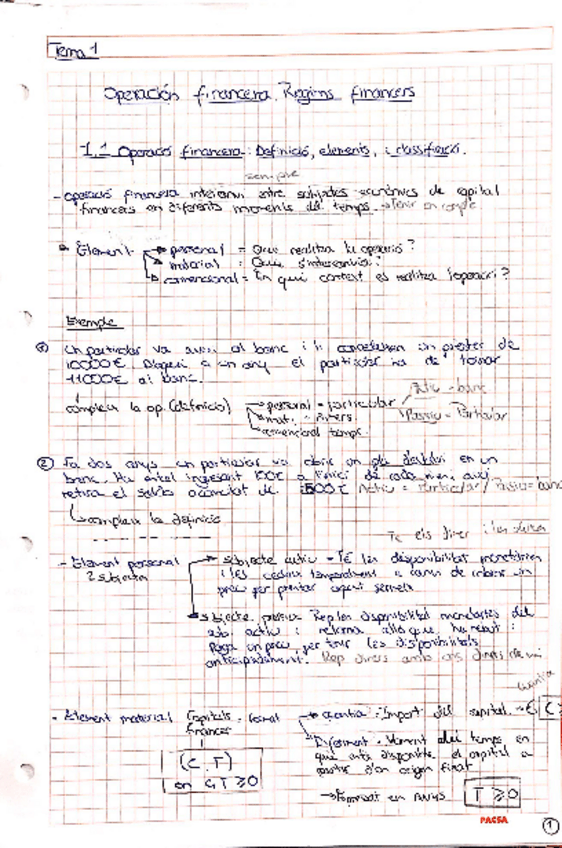 Tema 1
Operación financera. Regims financers
1.1 Operació financera: Definició, elements, i classificació.
sempre
- Operació financera intercanvi entre subjectes econòmics de capital
financers en diferents moments del temps → tenir en compte
Element → personal = Qui realitza la operació?
→ material = Que s'intercanvia?
→ convencional = En qui context es realitza l'operació?
Exemple
① Un particular va avui al banc i li concedeixen un prestec de
10000€. Després a un any el particular ha de tornar
11000€ al banc.
compleix la op. (definició) → personal = particular
Actiu = banc
Passiu = Particular
→ mat. = diners
→ convencional temps.
② Fa dos anys un particular va obrir un en un
banc. Ha anat ingresant 100€ a l'inici de cada mes i avui
retira el saldo acumulat de Actiu = Particular / Passiu = banc
↳ compleix la definició
Té els diners i les
- Element personal → subjecte actiu = Té les disponibilitat monetàries
2 subjectes i les cedeix temporalment a canvi de cobrar un
preu per prestar aquest servei
→ subjecte passiu Rep les disponibilitat monetàries del
sub. actiu i retorna allò que ha rebut i
Paga un preu per tenir les disponibilitats
anticipadament. Rep diners amb
quantia
- Element material Capitals financer → quantia = Import del capital → €
→ Diferiment = Moment del temps en
que està disponible el capital a
partir d'un origen fixat
(C, T)
on C, T ≥ 0
→ Formulat en Anys T ≥ 0
PACSA
①